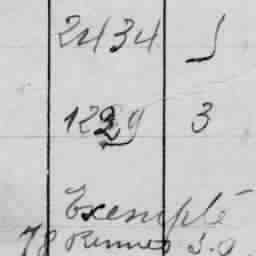 2434 J
1229 3
Exempté
78 Rennes S.O.